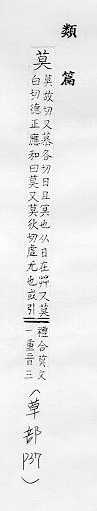 類篇
莫
莫故切又慕各切日且冥也从日在茻又莫
白切德正應和曰莫又莫狄切虛尤也或引
禮合文
一重音三
(草部 P37)